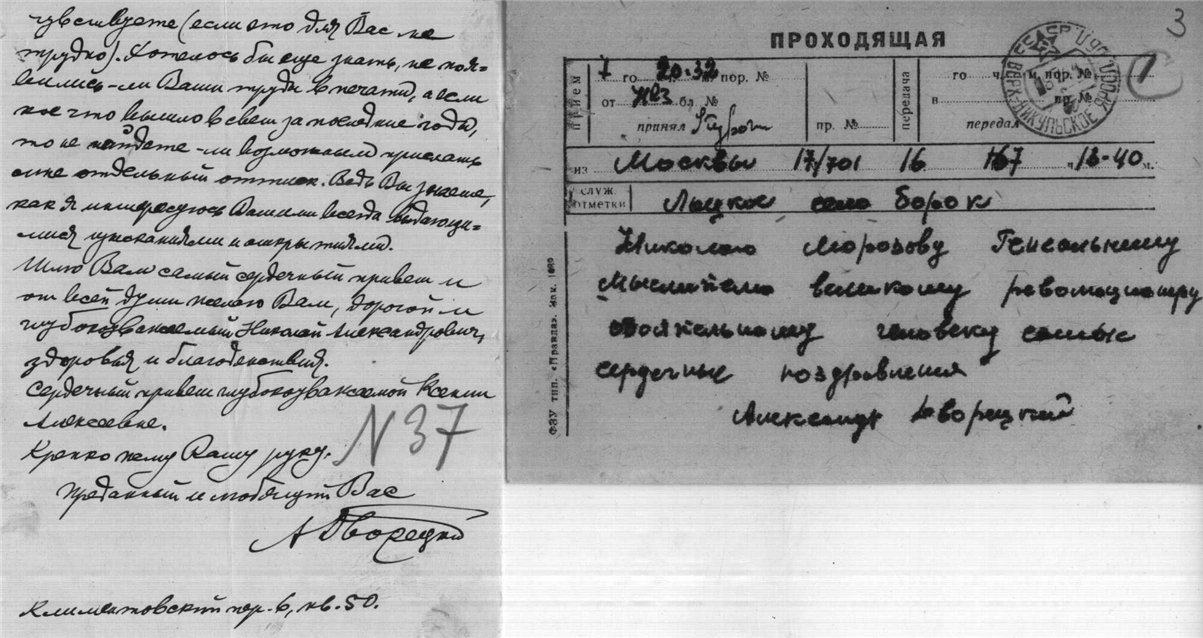 чувствуете (если это для Вас не
трудно). Хотелось бы еще знать, не поя-
вились-ли Ваши труды в печати, а если
кое что вышло в свет за последние годы,
то не найдете-ли возможным прислать
мне отдельный оттиск. Ведь Вы знаете,
как я интересуюсь Вашими всегда выдающи-
мися изысканиями и открытиями.
Шлю Вам самый сердечный привет и
от всей души желаю Вам, дорогой и
глубокоуважаемый Николай Александрович,
здоровья и благоденствия.
Сердечный привет глубокоуважаемой Ксении
Алексеевне.
Крепко жму Вашу руку.
N 37
Преданный и любящий Вас
АДворецкий
Климентовский пер. 6, кв. 50.
3
ПРОХОДЯЩАЯ
прием
7 го 20-32 пор. №
от бл. №
принял
пр. №
передача
го ч. м. пор. №
в пр. №
передал
ВЕРХ-НИКУЛЬСКОЕ ЯРОСЛ
из Москвы 17/701 16 167 ч 13-40 м.
СЛУЖ. ОТМЕТКИ село Борок
Николаю Морозову Гениальному
мыслителю великому революционеру
обаятельному человеку самые
сердечные поздравления
Александр Дворецкий
ФЗУ тип. «Правда». Зак.